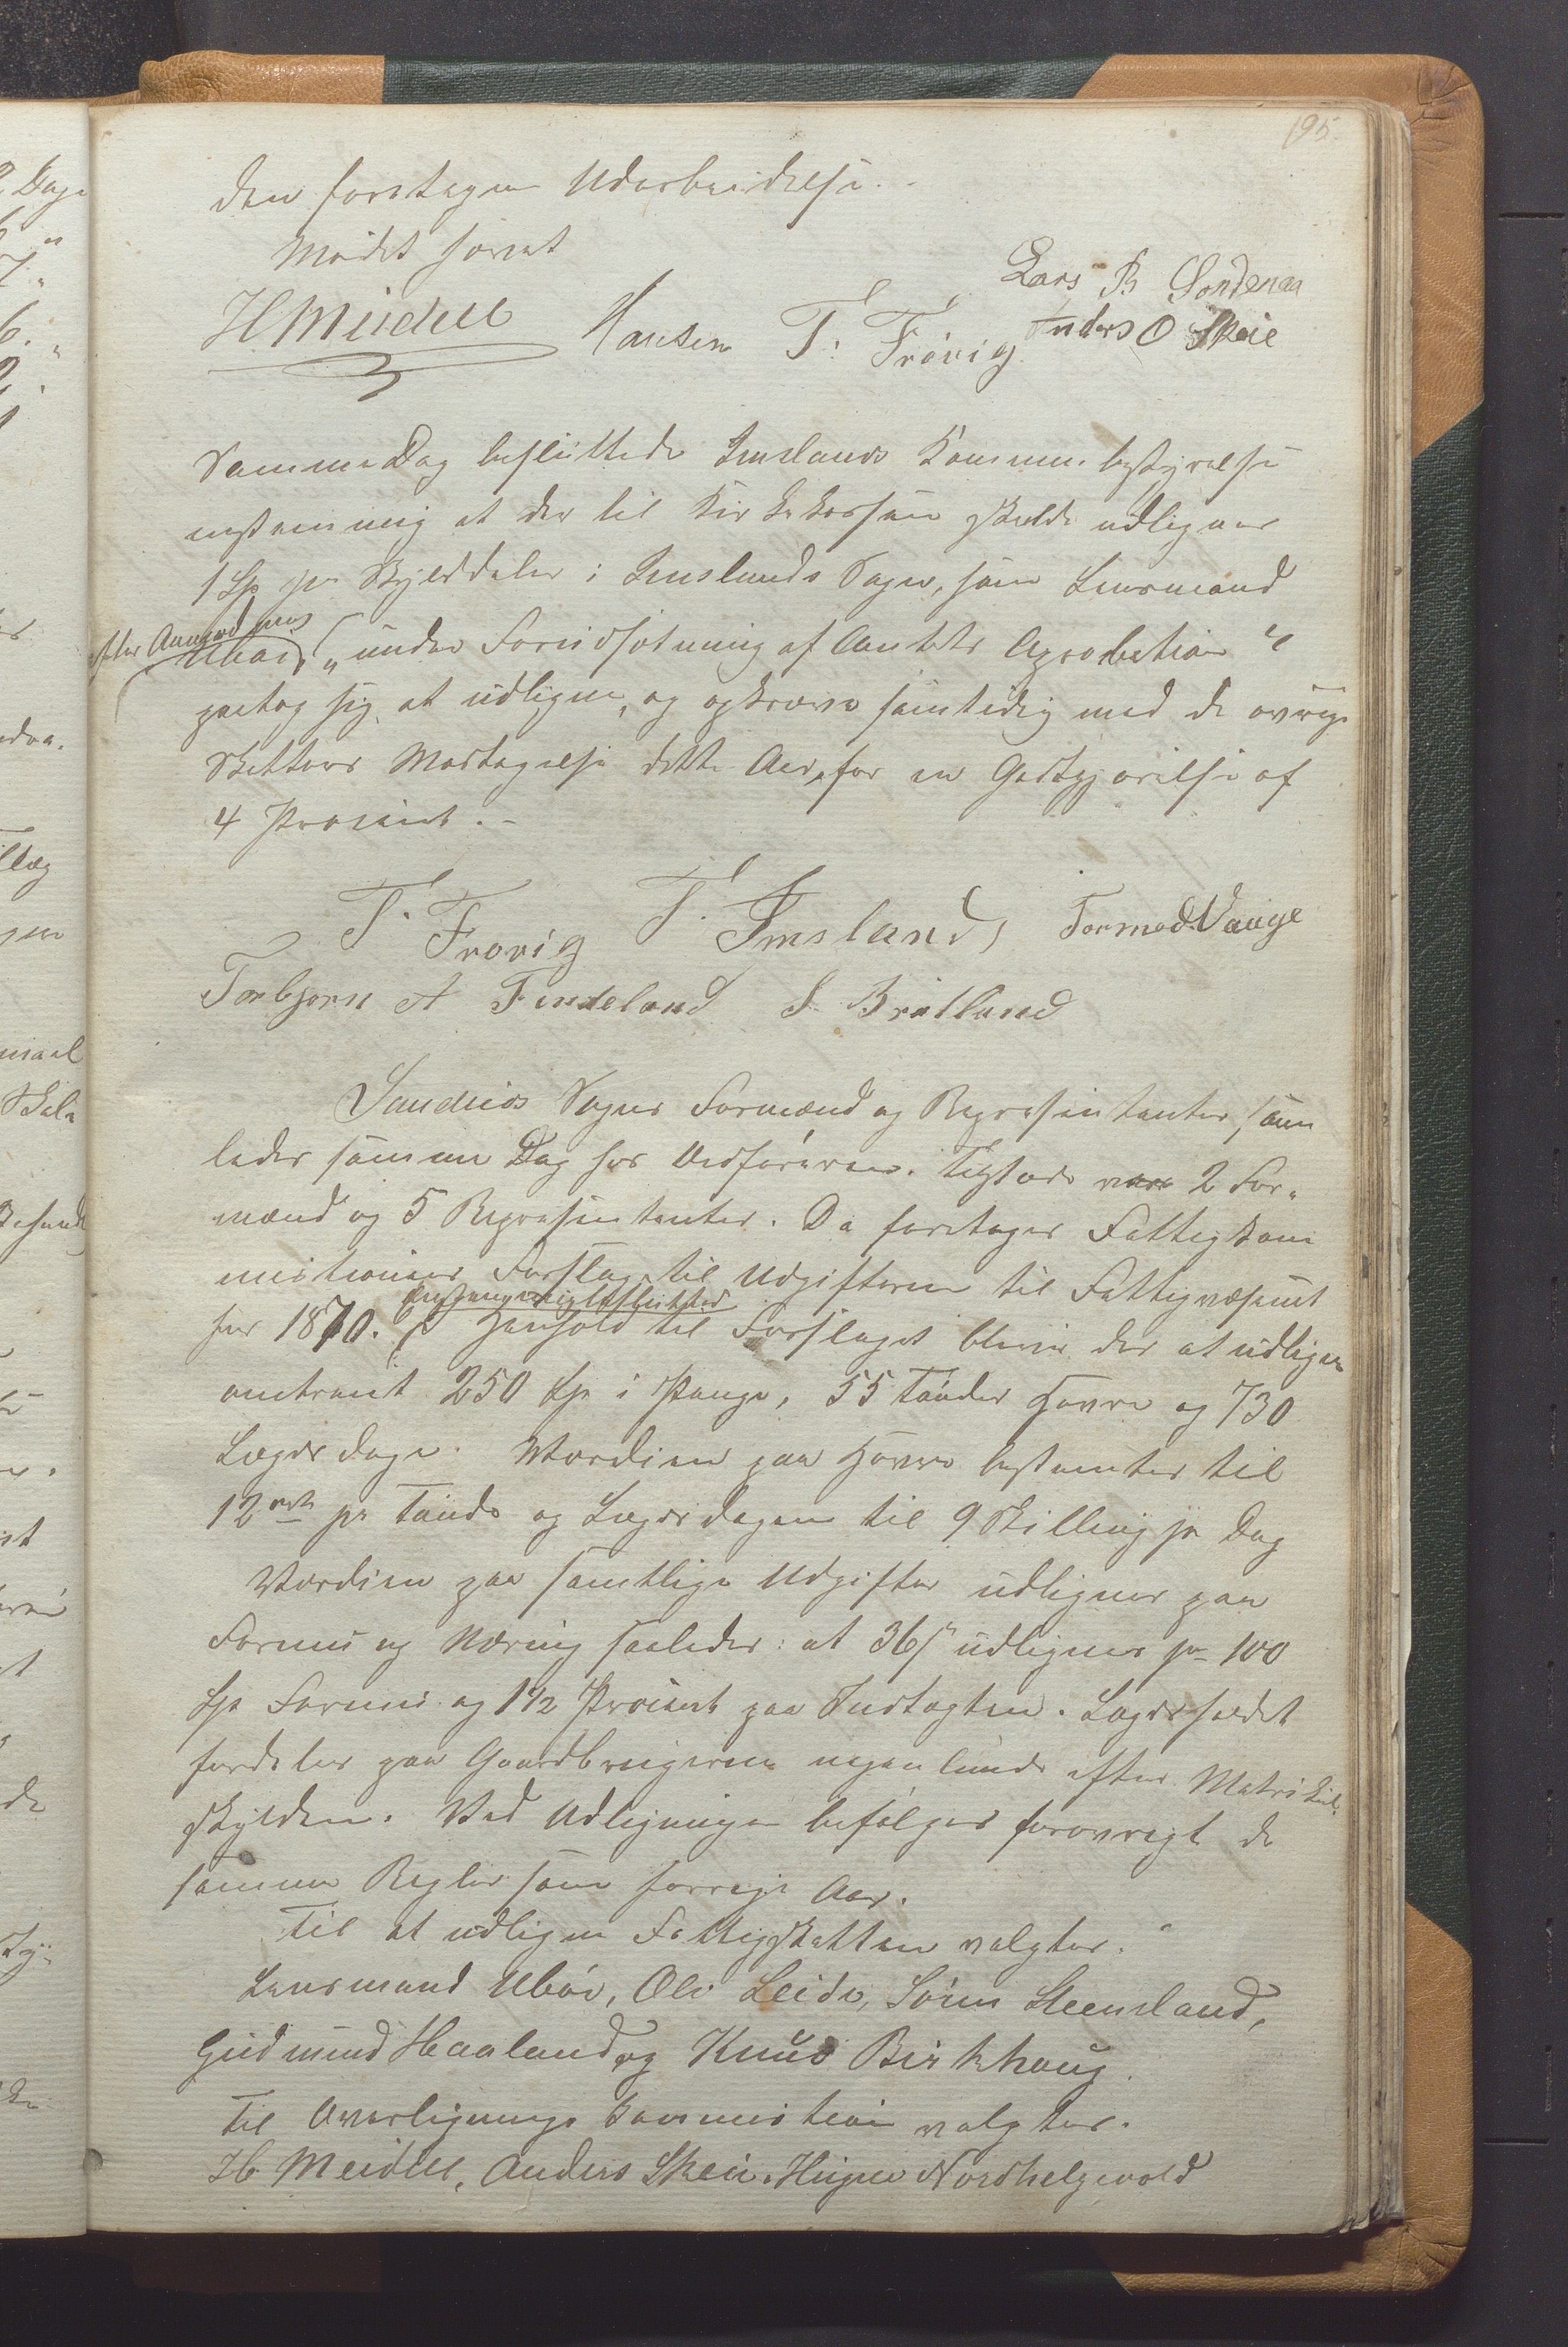 195.
den foretagne Udarbeidelse. -
Mødet hævet
Lars B Søndenaa
HMeidell Hansen T: Frøvig. Anders O Skeie
Samme Dag besluttede Imslands Kommunebestyrelse
enstemmig at der til Kirkekassen skulde udlignes
1 Sp pr Skylddaler i Imslands Sogn, som Lensmand
efter Anmodning
Ubøe, "under Forudsætning af Amtets Aprobation"
paatog sig at udligne, og opkræve samtidig med de øvrige
Skatters Modtagelse dette Aar, for en Godtgjørelse af
4 Procent. -
T. Frøvig T. Imsland, Tormod Vaage
Torbjørn A Findeland S. Bråtland
Sandeids Sogns Formænd og Repræsentanter sam
ledes samme Dag hos Ordføreren. Tilstede vare 2 For-
mænd og 5 Repræsentanter. Da foretages Fattigkom
missionens Forslag til Udgifterne til Fattigvæsenet
enstemmig besluttet
for 1870. I Henhold til Forslaget bliver der at udligne
omtrent 250 Sp i Penge, 55 Tønder Havre og 730
Lægdsdage. Værdien paa Havre bestemtes til
12 ort pr Tønde og Lægdsdagene til 9 Skilling pr Dag
Værdien paa samtlige Udgifter udlignes paa
Formue og Næring saaledes: at 36 s udlignes pr 100
Sp Formue og 1 1/2 Procent paa Indtægten. Lægdsholdet
fordeles paa Gaardbrugerne ligesom efter Matrikul-
skylden. Ved Udligningen befølges forøvrigt de
samme Regler som forrige Aar.
Til at udligne Fattigskatten valgtes.
Lensmand Ubøe, Ole Leide, Søren Steensland,
Gudmund Haaland og Knud Birkhaug.
Til Overligningskommission valgtes.
H Meidell, Anders Skeie, Helge Nordhelgevold